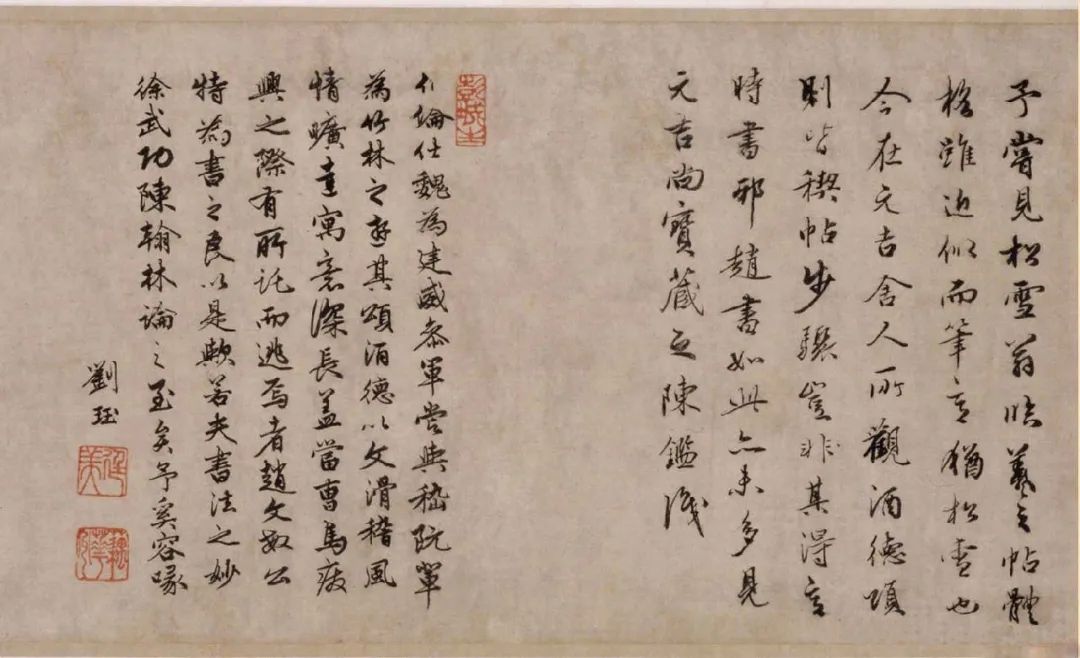 予嘗見松雪翁臨羲之帖體
格雖近似而筆意猶松雪也
今在元吉舍人所觀酒德頌
則皆稧帖步驟豈非其得意
時書邪趙書如此亦未多見
元吉尚寶藏之陳鑑識
彭城
伯倫仕魏為建威參軍嘗與嵇阮輩
為竹林之遊其頌酒德以文滑稽風
情曠達寓意深長蓋當曹馬廢
興之際有所託而逃焉者趙文敏公
特為書之良以是歟若夫書法之妙
徐武功陳翰林論之至矣予奚容喙
劉珏
廷美